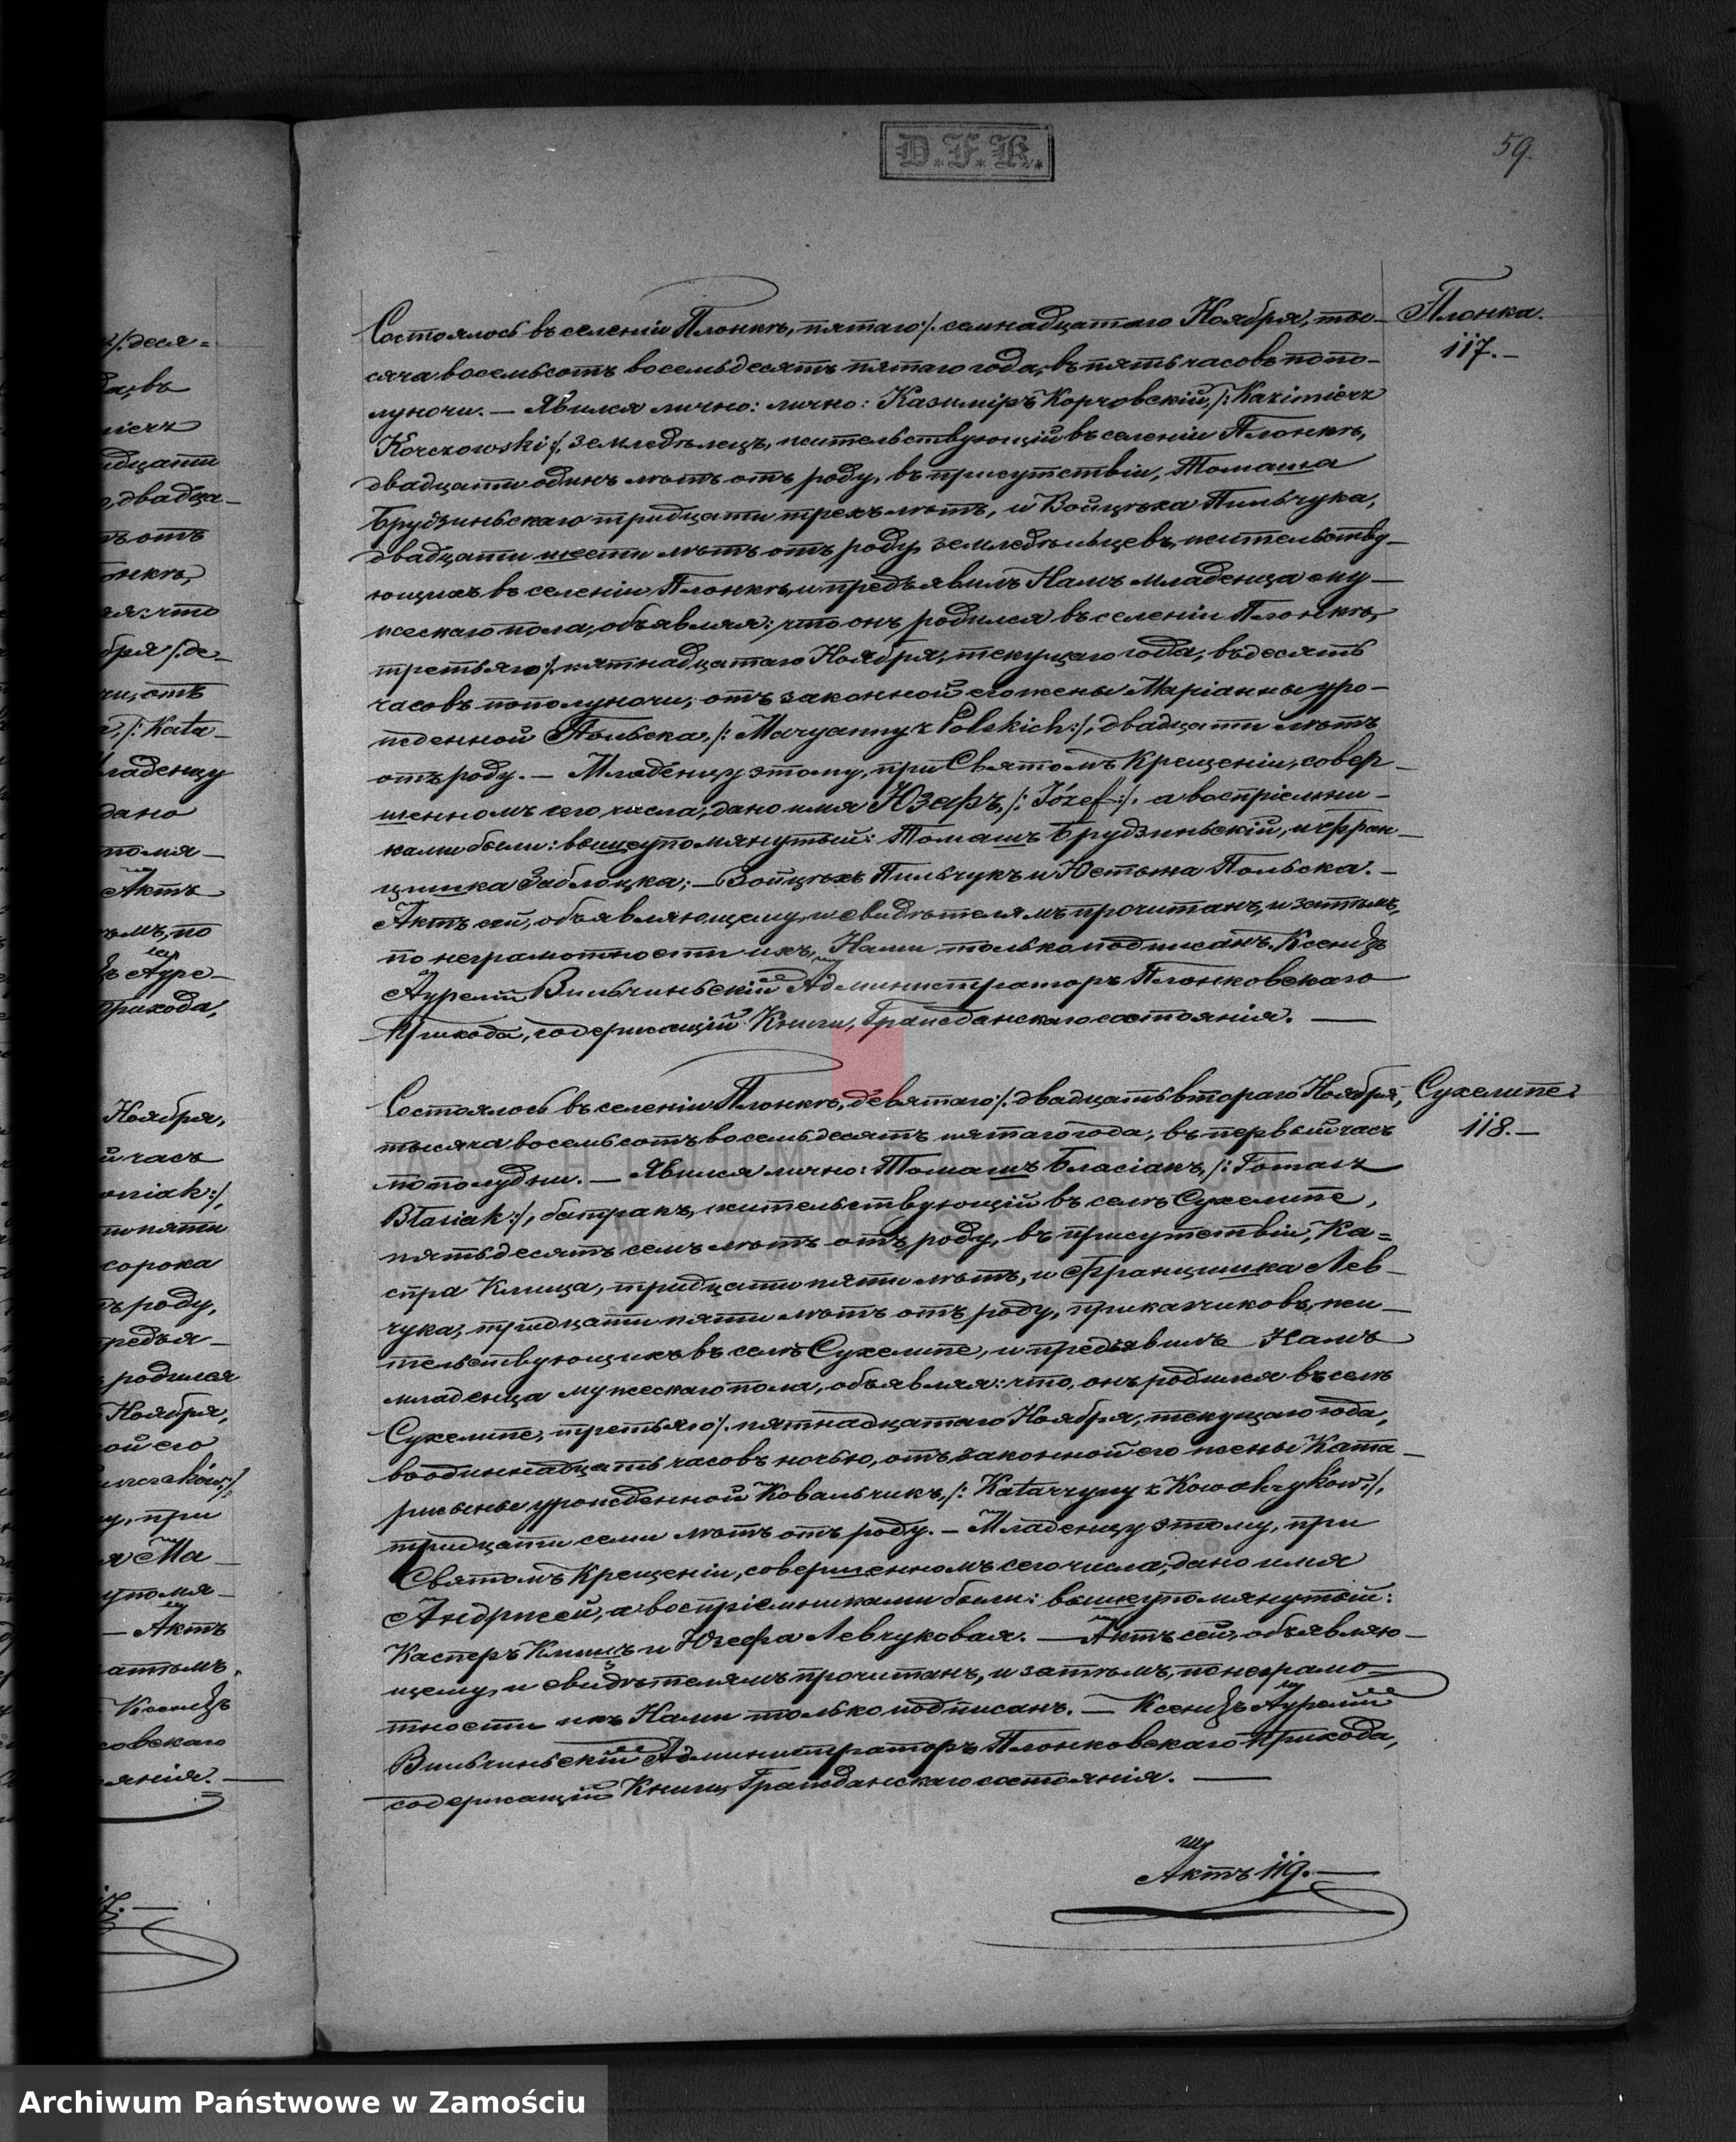 D.F.K.
59.
Плонка.
117.—
Состоялось въ селеніи Плонкѣ, пятаго/. семнадцатаго Ноября, ты-
сяча восемьсотъ восемьдесятъ пятаго года, въ пять часовъ попо-
луночи. — Явился лично: лично: Казиміръ Корчовскій, /: Kazimierz
Korczowski:/, земледѣлецъ, жительствующій въ селеніи Плонкѣ,
двадцати одинъ лѣтъ отъ роду, въ присутствіи, Томаша
Брудзиньскаго тридцати трехъ лѣтъ, и Войцѣха Пильчука,
двадцати шести лѣтъ отъ роду, земледѣльцевъ, жительству-
ющихъ въ селеніи Плонкѣ, и предъявилъ Намъ младенца му-
жескаго пола, объявляя: что онъ родился въ селеніи Плонкѣ,
третьяго/. пятнадцатаго Ноября, текущаго года, въ десять
часовъ пополуночи, отъ законной его жены Маріанны уро-
жденной Польска, /: Maryanny z Polskich:/, двадцати лѣтъ
отъ роду. — Младенцу этому, при Святомъ Крещеніи, совер-
шенномъ сего числа, дано имя Юзефъ, /: Józef:/, а воспріемни-
ками были: вышеупомянутый: Томашъ Брудзиньскій, и Фран-
цишка Заблоцка; — Войцѣхъ Пильчукъ и Юстына Польска. —
Актъ сей, объявляющему, и свидѣтелямъ прочитанъ, и затѣмъ,
по неграмотности ихъ, Нами только подписанъ. Ксендзъ
Аурелій Вильчиньскій Администраторъ Плонковскаго
Прихода, содержащій Книги, Гражданскаго состоянія. —
Сухелипе.
118.—
Состоялось въ селеніи Плонкѣ, девятаго/. двадцать втораго Ноября,
тысяча восемьсотъ восемьдесятъ пятаго года, въ первый часъ
пополудни. — Явился лично: Томашъ Бласіакъ, /: Tomasz
Błasiak:/, батракъ, жительствующій въ селѣ Сухелипе,
пятьдесятъ семь лѣтъ отъ роду, въ присутствіи, Ка=
спра Клыца, тридцати пяти лѣтъ, и Францишка Лев-
чука, тридцати пяти лѣтъ отъ роду, прикащиковъ, жи-
тельствующихъ въ селѣ Сухелипе, и предъявилъ Намъ
младенца мужескаго пола, объявляя: что, онъ родился въ селѣ
Сухелипе, третьяго/. пятнадцатаго Ноября, текущаго года,
въ одиннадцать часовъ ночью, отъ законной его жены Ката-
ржыны урожденной Ковальчикъ, /: Katarzyny z Kowalczyków:/,
тридцати семи лѣтъ отъ роду. — Младенцу этому, при
Святомъ Крещеніи, совершенномъ сего числа, дано имя
Андржей, а воспріемниками были: вышеупомянутый:
Касперъ Клыцъ и Юзефа Левчуковая. — Актъ сей, объявляю-
щему, и свидѣтелямъ прочитанъ, и затѣмъ, по неграмо-
тности ихъ Нами только подписанъ. — Ксендзъ Аурелій
Вильчиньскій Администраторъ Плонковскаго Прихода,
содержащій Книги, Гражданскаго состоянія. —
Актъ 119.—
Archiwum Państwowe w Zamościu